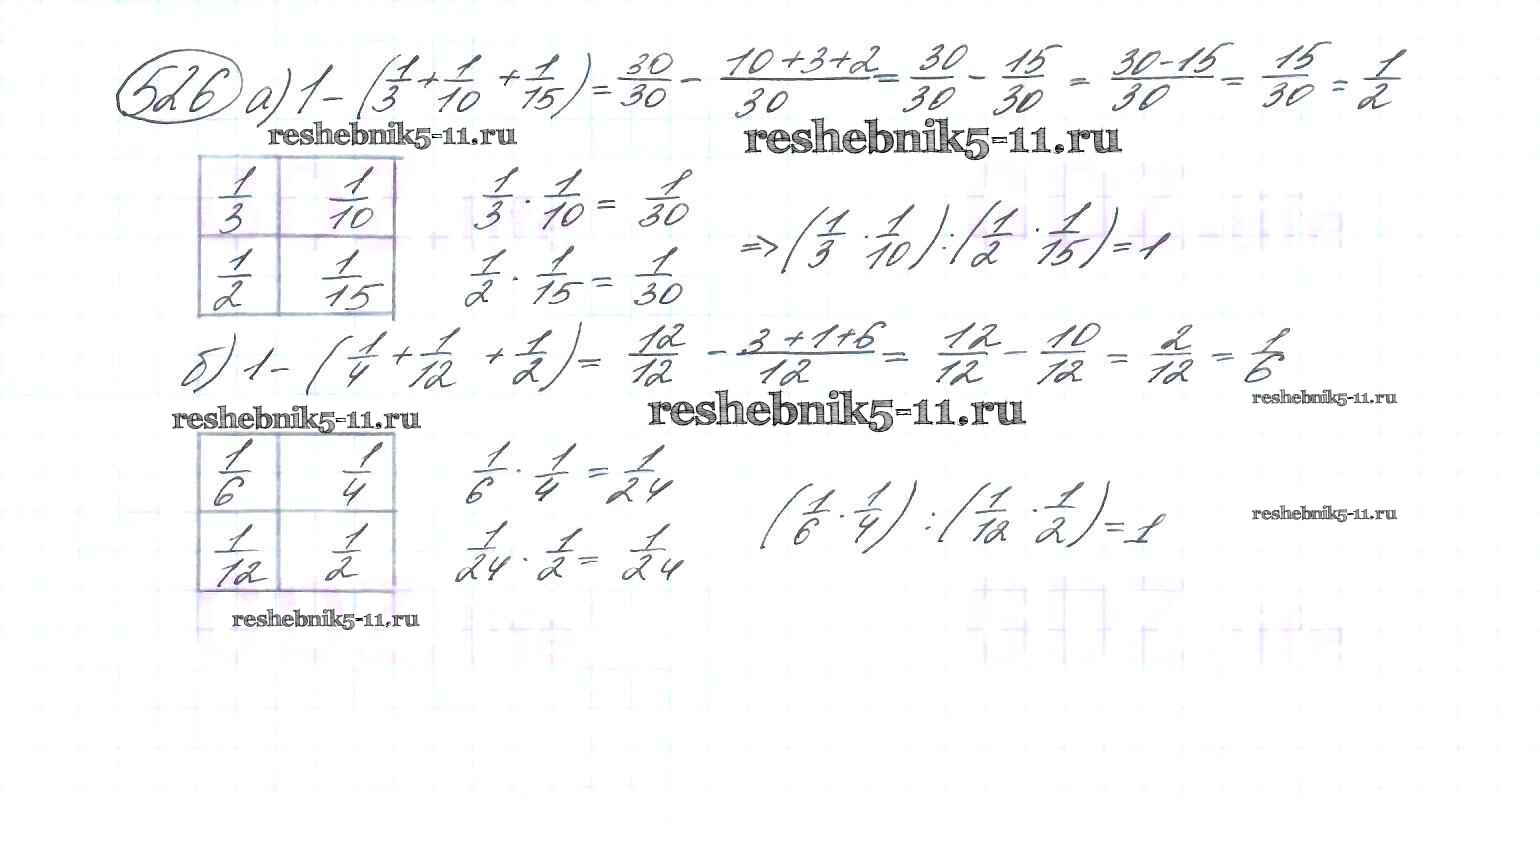 526 а) 1 - (1/3 + 1/10 + 1/15) = 30/30 - (10+3+2)/30 = 30/30 - 15/30 = (30-15)/30 = 15/30 = 1/2
reshebnik5-11.ru reshebnik5-11.ru
1/3 1/10 1/3 · 1/10 = 1/30
=> (1/3 · 1/10) : (1/2 · 1/15) = 1
1/2 1/15 1/2 · 1/15 = 1/30
б) 1 - (1/4 + 1/12 + 1/2) = 12/12 - (3+1+6)/12 = 12/12 - 10/12 = 2/12 = 1/6
reshebnik5-11.ru reshebnik5-11.ru reshebnik5-11.ru
1/6 1/4 1/6 · 1/4 = 1/24
(1/6 · 1/4) : (1/12 · 1/2) = 1 reshebnik5-11.ru
1/12 1/2 1/24 · 1/2 = 1/24
reshebnik5-11.ru